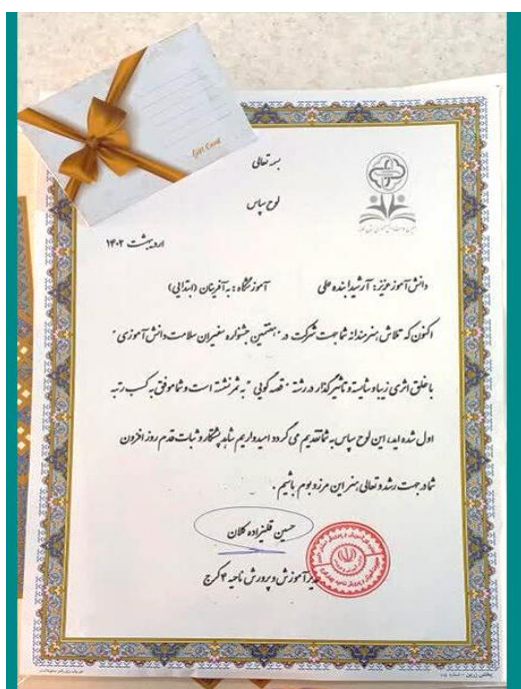 Gift Card
بسمه تعالی
لوح سپاس
اردیبهشت ۱۴۰۲
دانش آموز عزیز: آرشیدا بنده علی
آموزشگاه: به آفرینان (ابتدایی)
اکنون که تلاش هنرمندانه شما جهت شرکت در "هفتمین جشنواره سفیران سلامت دانش آموزی"
با خلق اثری زیبا و شایسته و تاثیرگذار در رشته "قصه گویی" به ثمر نشسته است و شما موفق به کسب رتبه
اول شده اید، این لوح سپاس به شما تقدیم می گردد امیدواریم شاهد پشتکار و ثبات قدم روز افزون
شما در جهت رشد و تعالی هنر این مرز و بوم باشیم.
حسین قلیزاده کلان
مدیر آموزش و پرورش ناحیه ۴ کرج